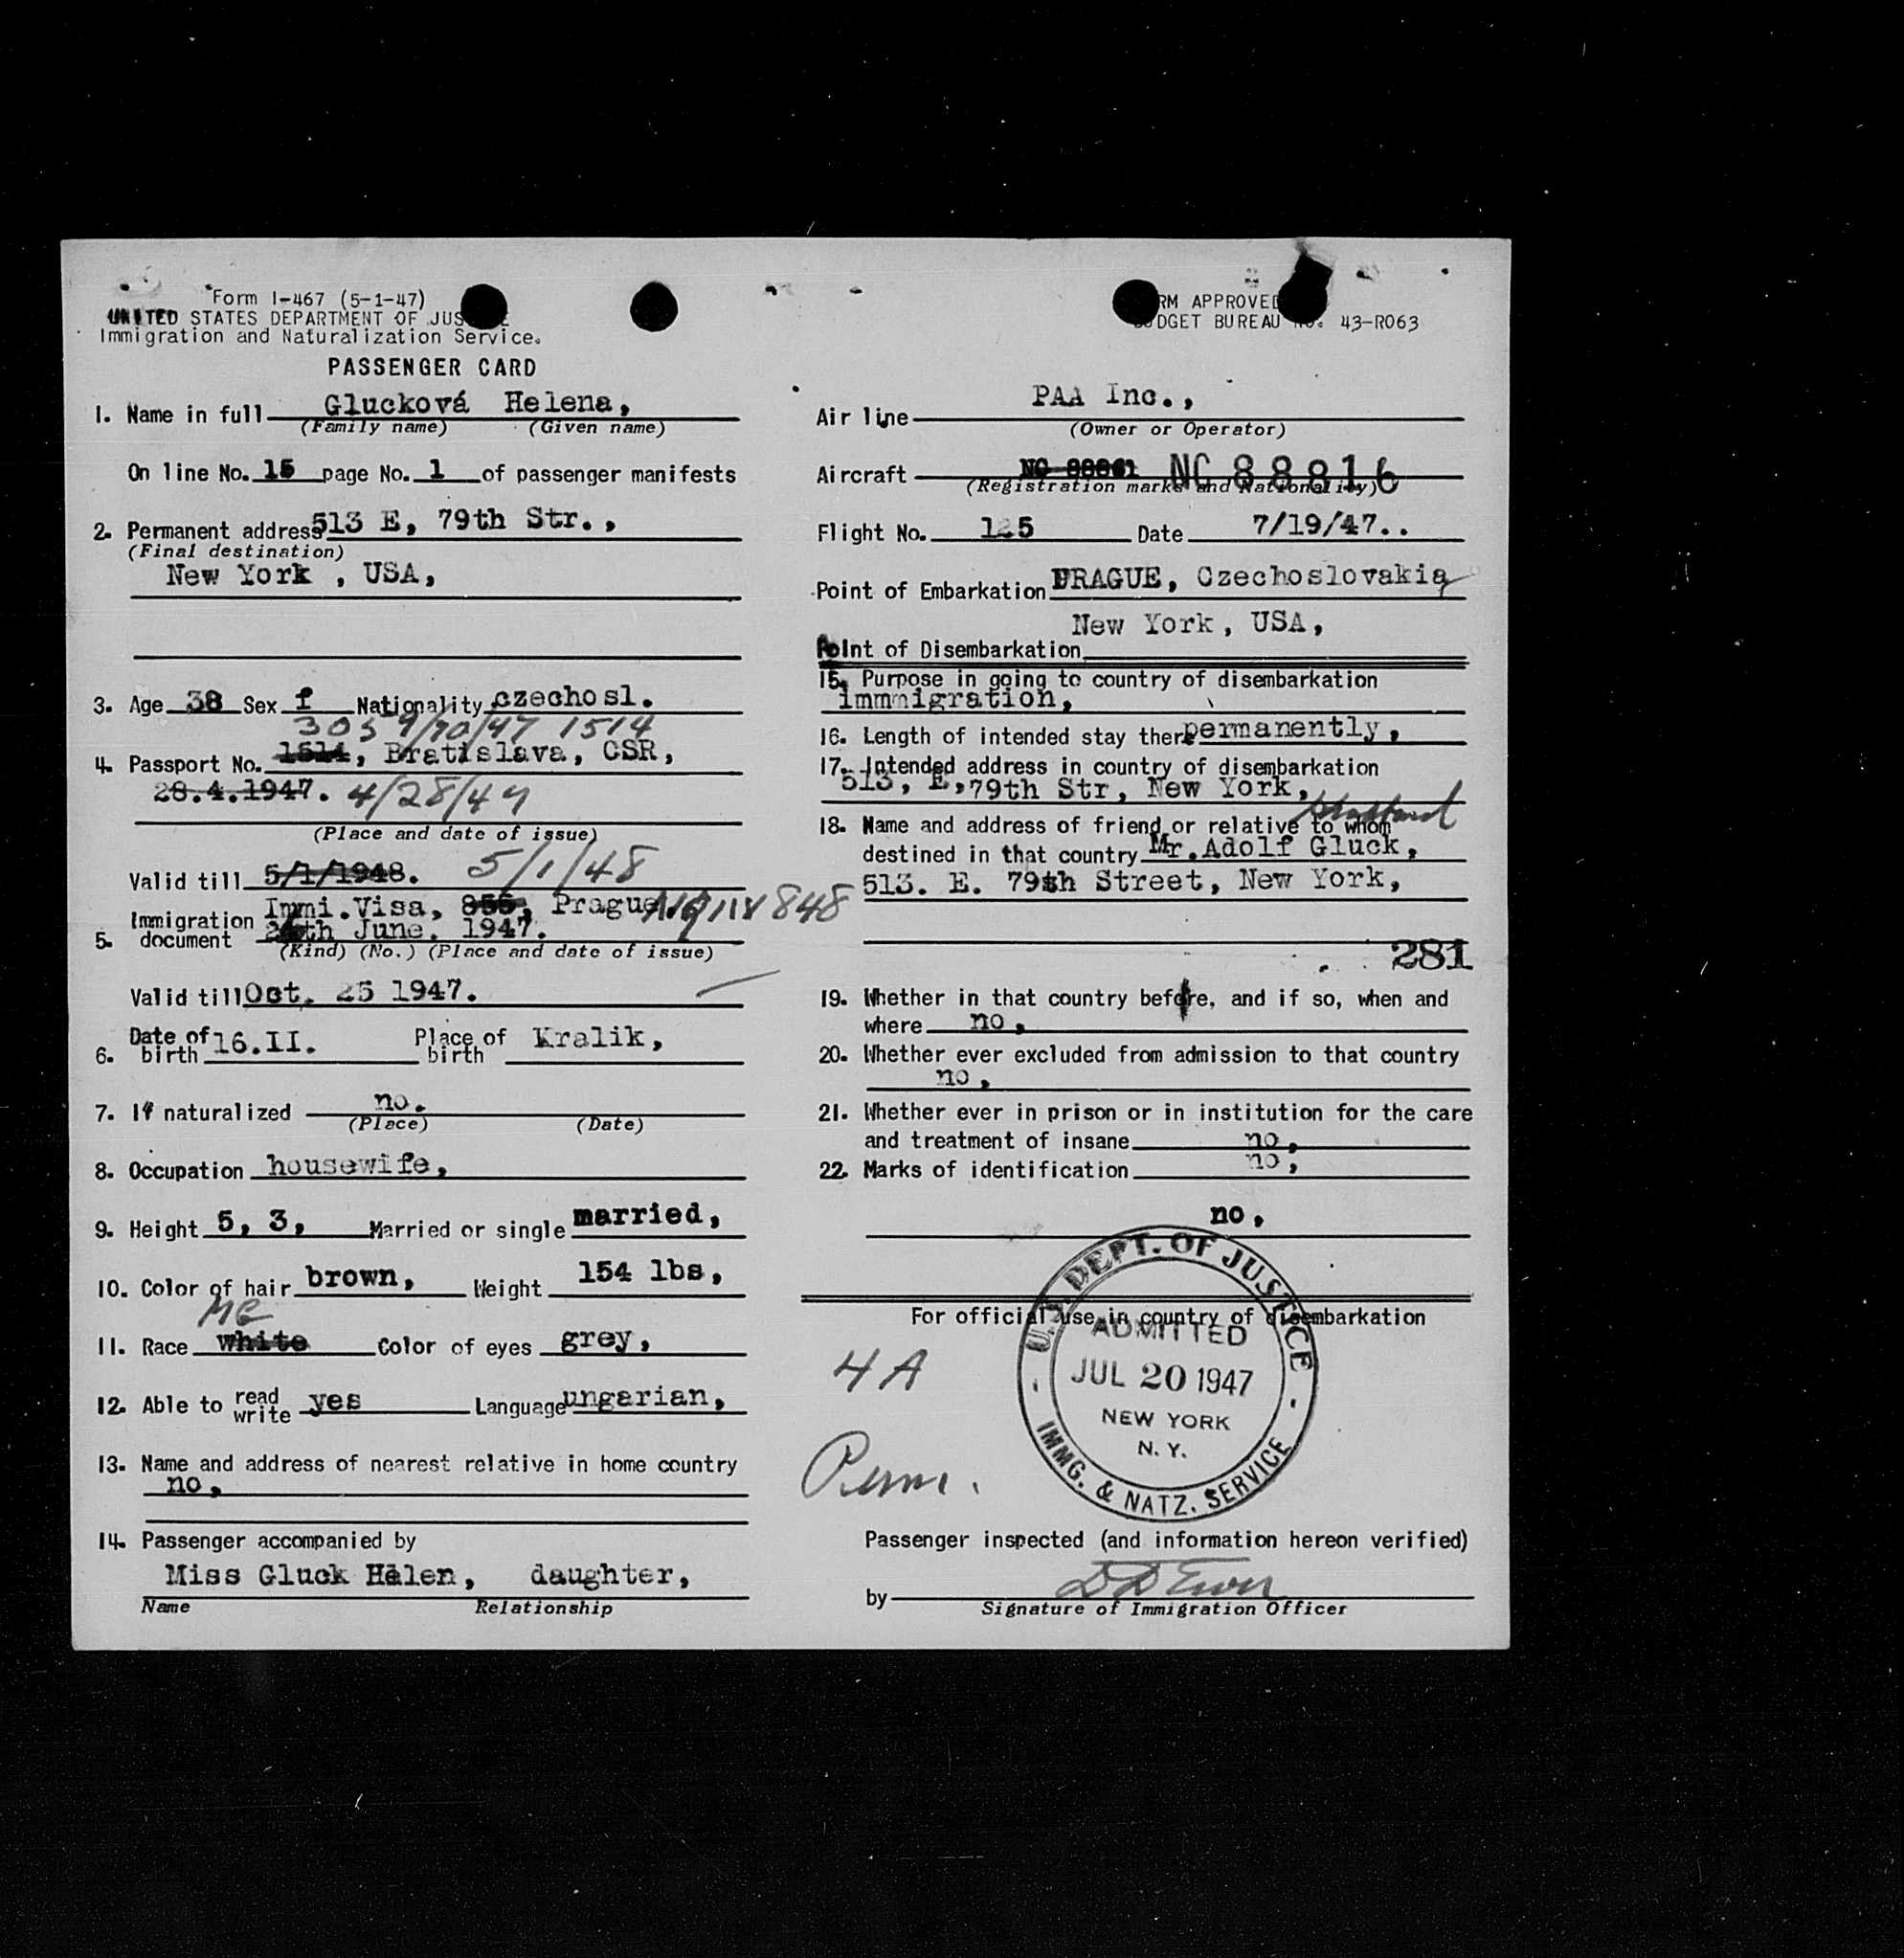 Form I-467 (5-1-47)
UNITED STATES DEPARTMENT OF JUS
Immigration and Naturalization Service.
PASSENGER CARD
1. Name in full Glucková Helena,
(Family name) (Given name)
On line No. 15 page No. 1 of passenger manifests
2. Permanent address 513 E, 79th Str.,
(Final destination)
New York , USA,
3. Age 38 Sex f Nationality czechosl.
1514
4. Passport No. 1514, Bratislava, CSR,
28.4.1947. 4/28/47
(Place and date of issue)
Valid till 5/1/1948. 5/1/48
5. Immigration document Immi.Visa, 855, Prague 848
th June. 1947.
(Kind) (No.) (Place and date of issue)
Valid till Oct. 25 1947.
6. Date of birth 16.II. Place of birth Kralik,
7. If naturalized no.
(Place) (Date)
8. Occupation housewife,
9. Height 5, 3, Married or single married,
10. Color of hair brown, Weight 154 lbs,
11. Race white Color of eyes grey,
12. Able to read write yes Language ungarian,
13. Name and address of nearest relative in home country
no,
14. Passenger accompanied by
Miss Gluck Helen, daughter,
Name Relationship
RM APPROVED
DGET BUREAU NO. 43-R063
Air line PAA Inc.,
(Owner or Operator)
Aircraft NC 88861 NC 88816
(Registration marks and Nationality)
Flight No. 125 Date 7/19/47..
Point of Embarkation PRAGUE, Czechoslovakia
New York, USA,
Point of Disembarkation
15. Purpose in going to country of disembarkation
immnigration,
16. Length of intended stay there permanently,
17. Intended address in country of disembarkation
513, E, 79th Str, New York,
husband
18. Name and address of friend or relative to whom
destined in that country Mr.Adolf Gluck,
513. E. 79th Street, New York,
281
19. Whether in that country before, and if so, when and
where no,
20. Whether ever excluded from admission to that country
no,
21. Whether ever in prison or in institution for the care
and treatment of insane no,
22. Marks of identification no,
no,
For official use in country of disembarkation
U.S. DEPT. OF JUSTICE
ADMITTED
JUL 20 1947
NEW YORK
N. Y.
IMMG. & NATZ. SERVICE
4A
Perm.
Passenger inspected (and information hereon verified)
by
Signature of Immigration Officer